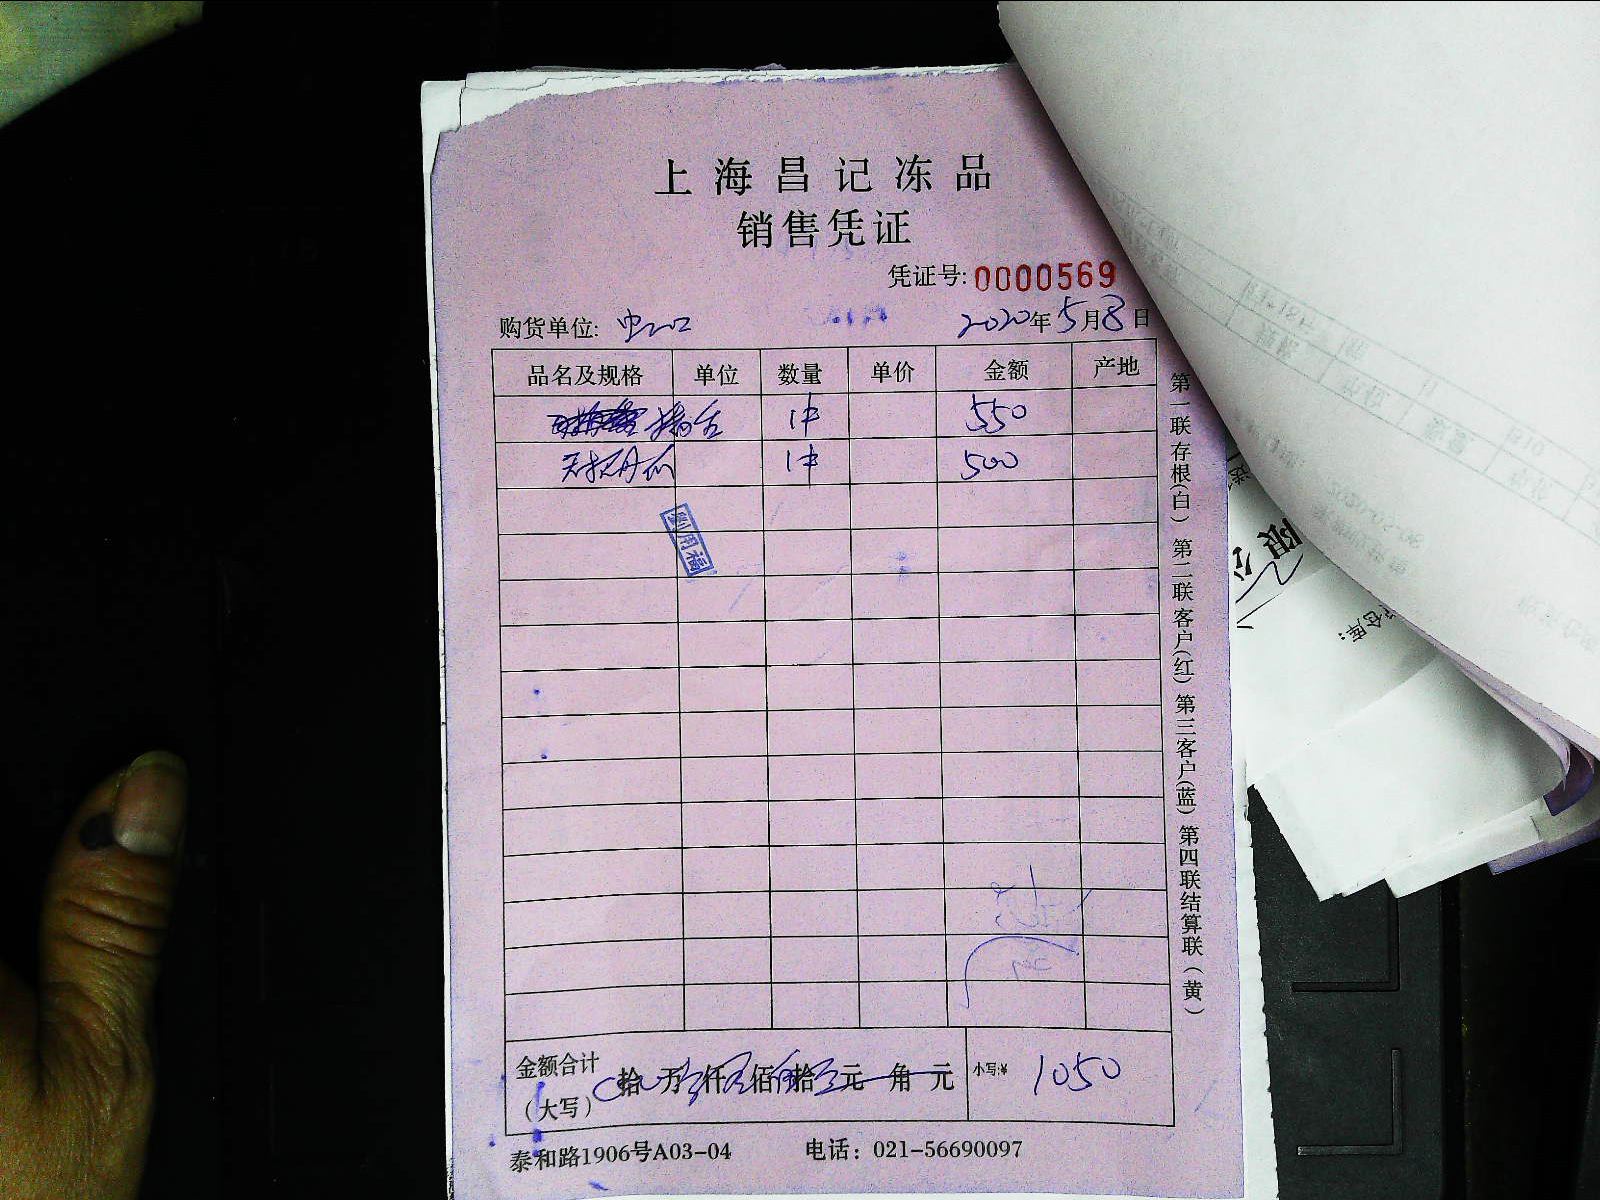 上海昌记冻品
销售凭证
凭证号: 0000569
购货单位: 虹口
2020年5月8日
品名及规格 单位 数量 单价 金额 产地
猪舌 1件 550
1件 500
劉用福
金额合计
（大写） 拾 万 仟 佰 拾 元 角 元 小写:¥ 1050
泰和路1906号A03-04 电话：021-56690097
第一联存根(白) 第二联客户(红) 第三客户(蓝) 第四联结算联(黄)
限公
仓库：